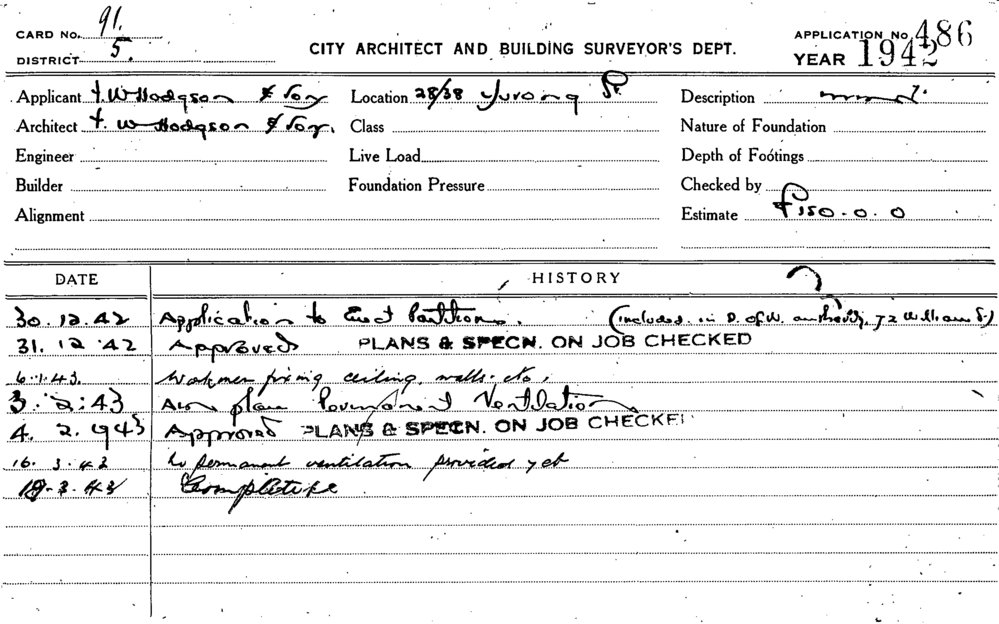 CARD NO. 91.
DISTRICT 5.
CITY ARCHITECT AND BUILDING SURVEYOR'S DEPT.
APPLICATION No. 486
YEAR 1942
Applicant F. W Hodgson & Son
Location 28/38 Yurong St.
Description
Architect F. W Hodgson & Son.
Class
Nature of Foundation
Engineer
Live Load
Depth of Footings
Builder
Foundation Pressure
Checked by
Alignment
Estimate £150.0.0
DATE HISTORY
30.12.42 Application to Erect Partitions. (included in D. of W. authority, 72 William St.)
31.12.42 Approved PLANS & SPECN. ON JOB CHECKED
6.1.43. Workmen fixing ceiling, walls. etc.
3.2.43 plan Permanent Ventilation
4.2.943 Approved PLANS & SPECN. ON JOB CHECKED
16.3.43 No permanent ventilation provided yet
19.3.43 Completed